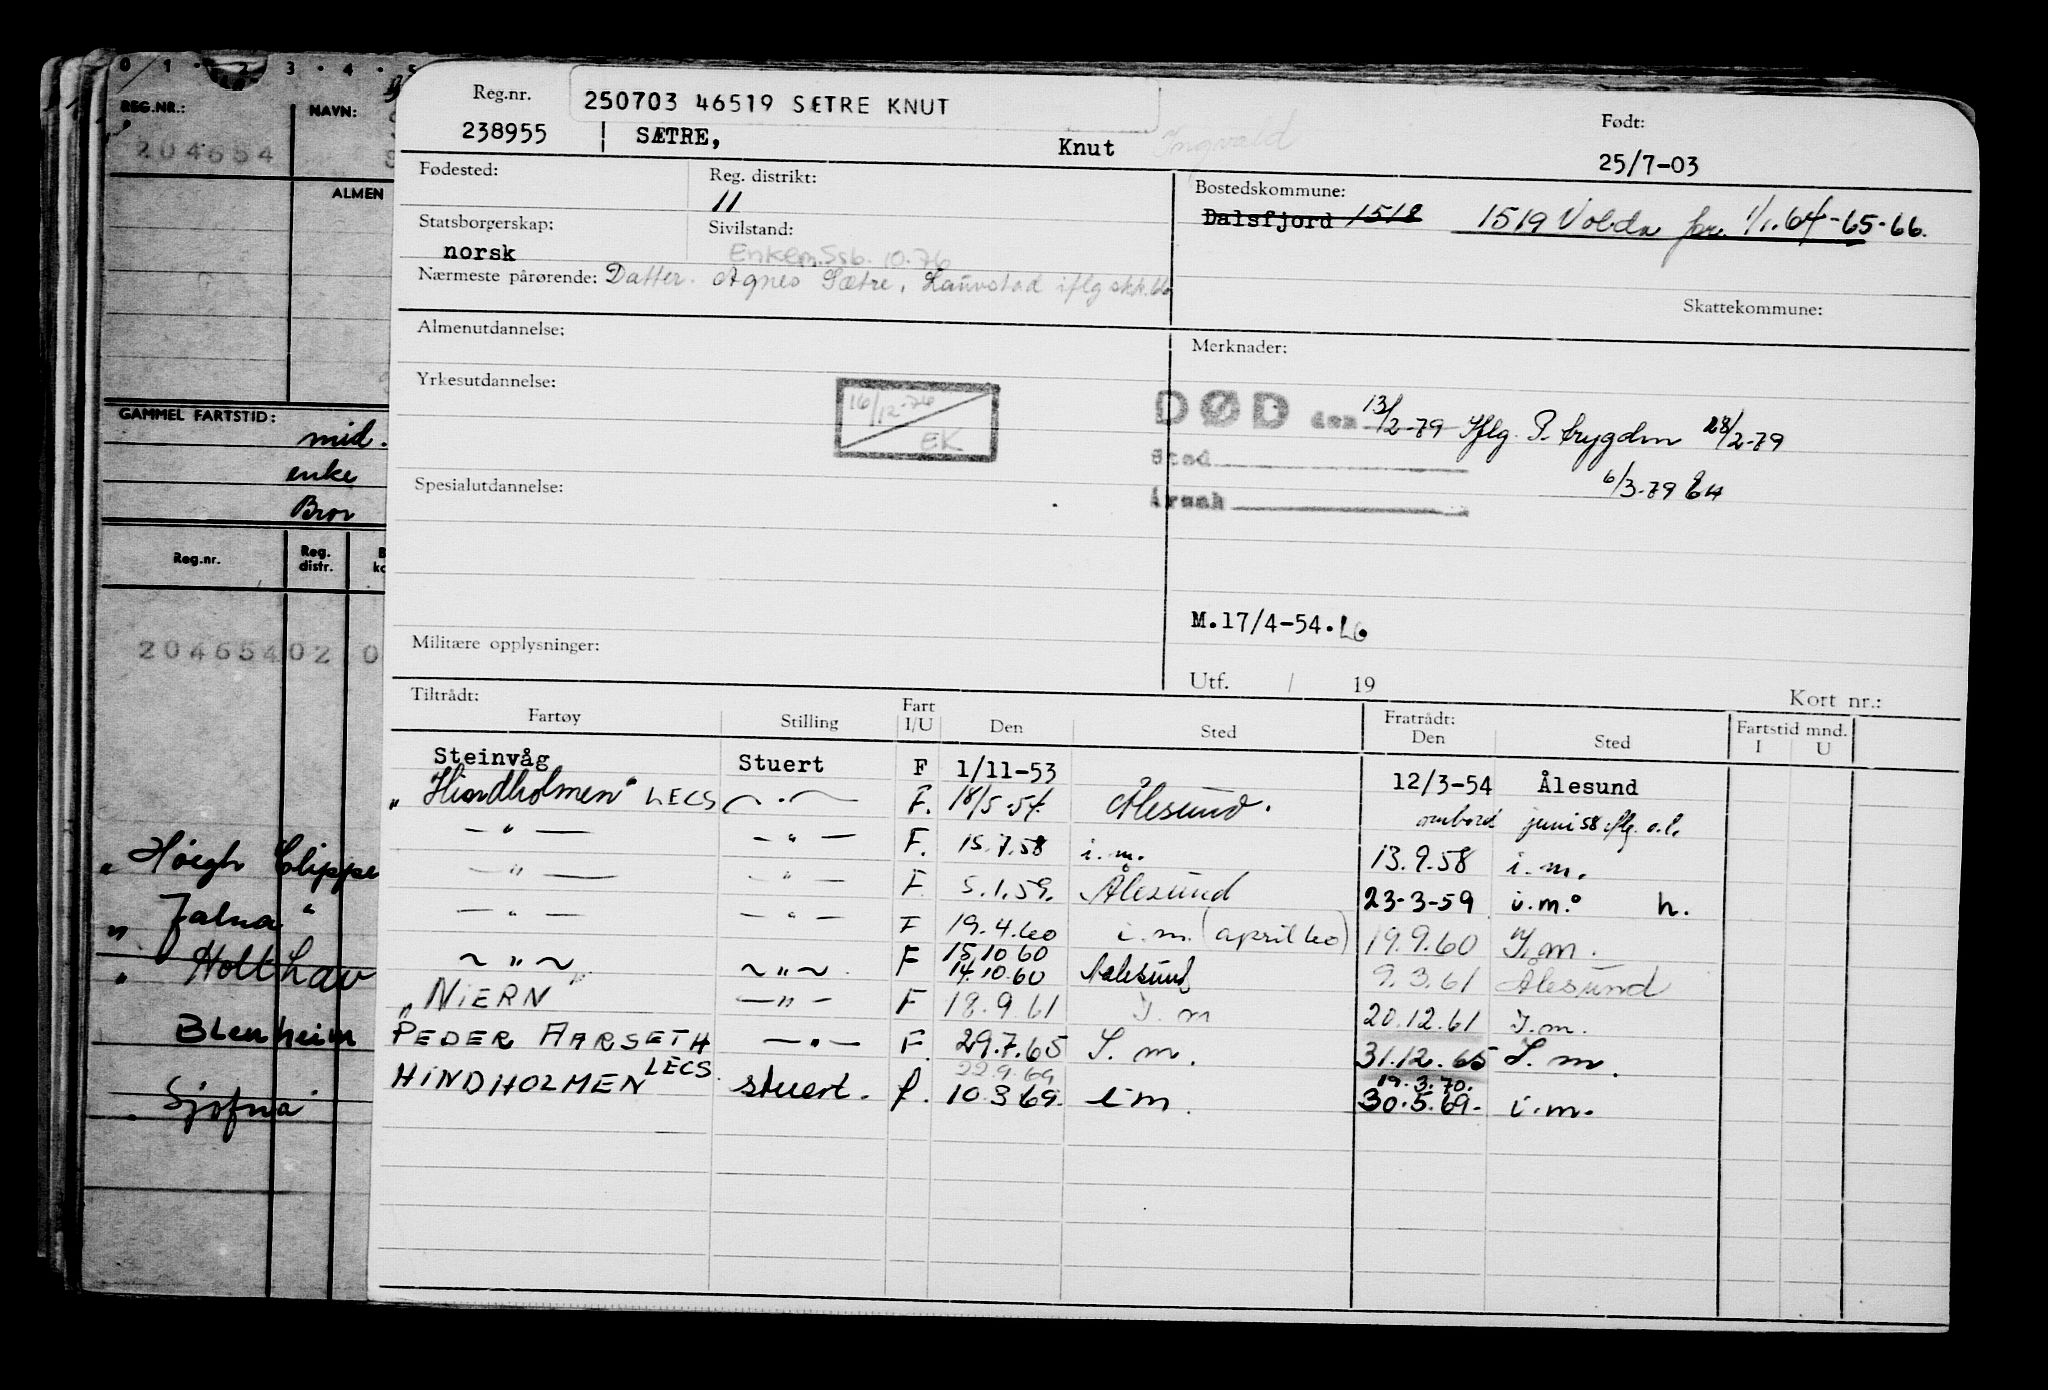 0 1 · 2 3 · 4 · 5
REG.NR.: NAVN:
204654 S
ALMEN
GAMMEL FARTSTID:
mid.
enke
Bror
Reg.nr. Reg. distr.
20465402 0
" Høegh Clippe
" Jalna "
" Holthav
Blenheim
" Sjofna "
Reg.nr. 250703 46519 SÆTRE KNUT
238955 SÆTRE, Knut Ingvald
Født:
25/7-03
Fødested: Reg. distrikt: Bostedskommune:
11 Dalsfjord 1518 1519 Volda fr. 1/1.64-65-66.
Statsborgerskap: Sivilstand:
norsk Enkem. Ssb. 10.76
Nærmeste pårørende: Datter. Agnes Sætre, Lauvstad iflg skk. 66
Skattekommune:
Almenutdannelse: Merknader:
Yrkesutdannelse:
16/12-76 EK
DØD den 13/2-79 Iflg. P. trygden 28/2-79
Sted
Årsak 6/3-79
Spesialutdannelse:
M.17/4-54.
Militære opplysninger:
Utf. / 19 Kort nr.:
Tiltrådt: Fratrådt:
Fartøy Stilling Fart I/U Den Sted Den Sted Fartstid mnd. I U
Steinvåg Stuert F 1/11-53 12/3-54 Ålesund
"Hindholmen" LECS — " — F. 18/5-54. Ålesund. ombord juni 58 iflg. o.l.
— " — — " — F. 15.7.58 i.m. 13.9.58 i.m.
— " — — " — F. 5.1.59. Ålesund 23-3-59 i.m. h.
— " — — " — F 19.4.60 i.m. (april 60) 19.9.60 I.m.
15.10 60
~ " ~ ~ " ~ F 14.10.60 Aalesund 9.3.61 Ålesund
"NIERN" — " — F 18.9.61 I.m 20.12.61 I.m.
PEDER AARSETH — " — F. 29.7.65 I.m. 31.12.65 I.m.
22.9.69 19.3.70.
HINDHOLMEN LECS. stuert. f. 10.3 69. i m. 30.5.69. i.m.